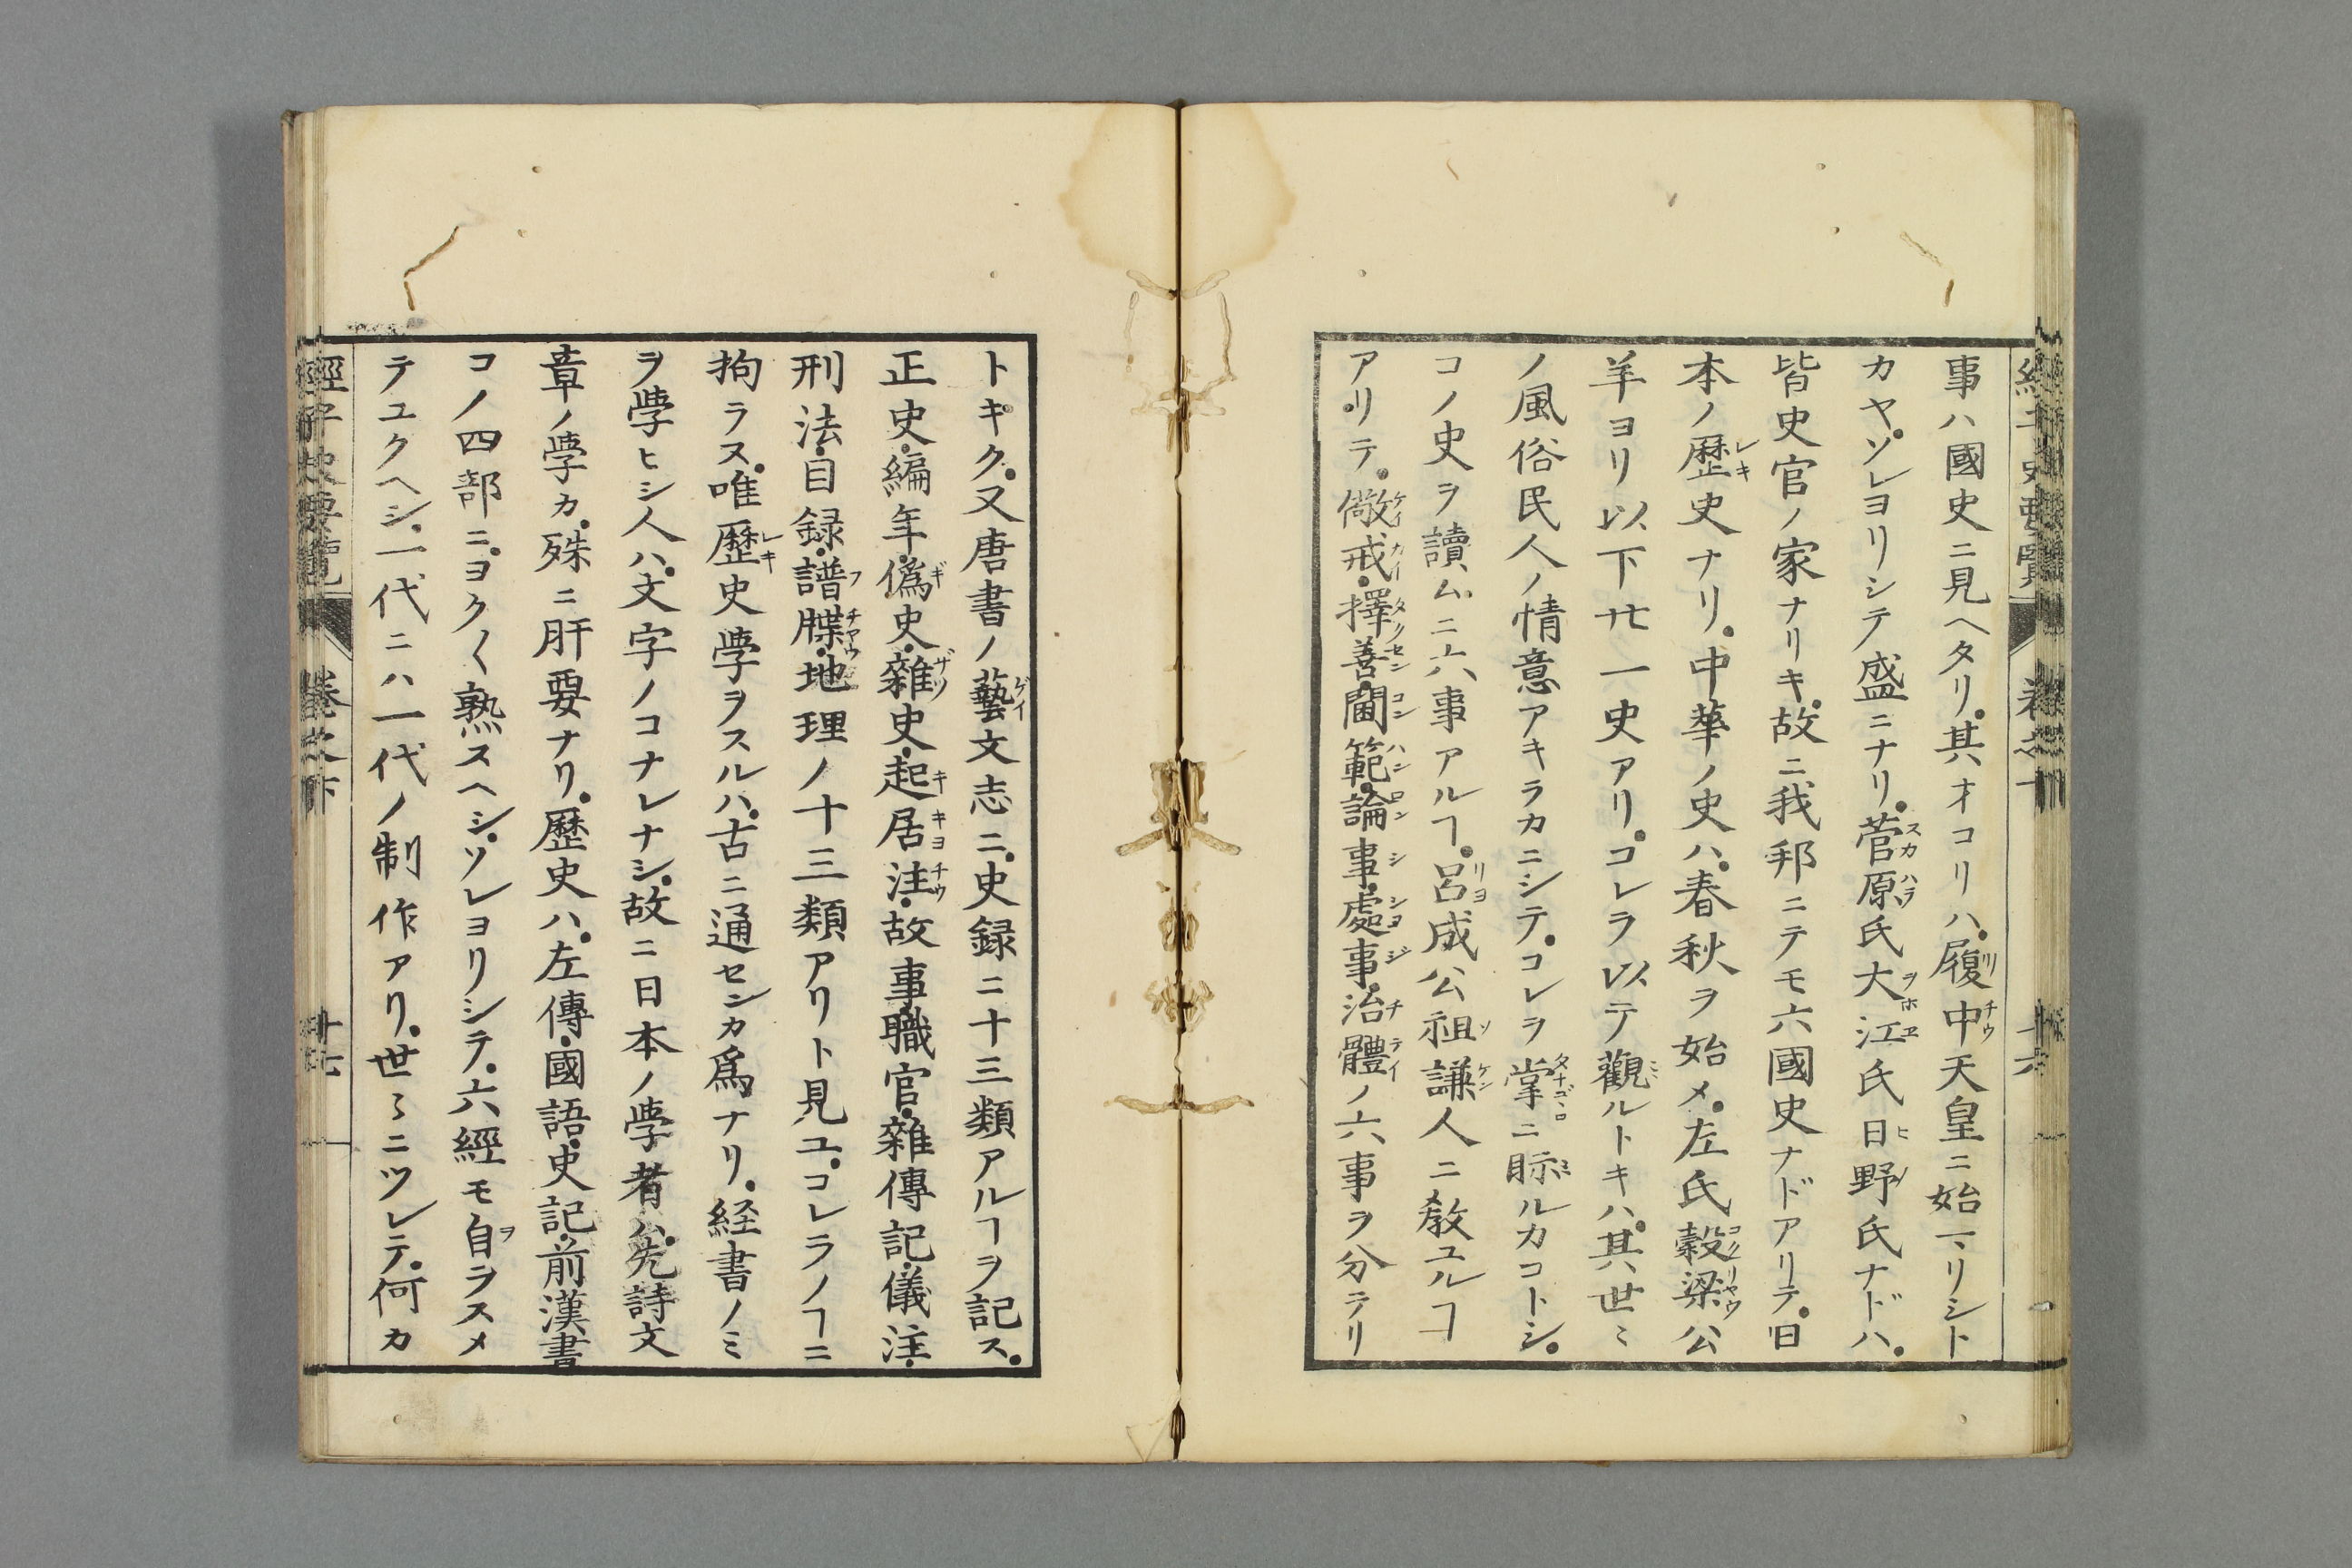 事ハ國史ニ見ヘタリ。其オコリハ。履中天皇ニ始マリシト
カヤ。ソレヨリシテ盛ニナリ。菅原氏大江氏日野氏ナドハ。
皆史官ノ家ナリキ。故ニ我邦ニテモ六國史ナドアリテ。日
本ノ歴史ナリ。中華ノ史ハ。春秋ヲ始メ。左氏穀梁公
羊ヨリ以下廿一史アリ。コレラ以テ觀ルトキハ。其世〻
ノ風俗民人ノ情意アキラカニシテ。コレヲ掌ニ眎ルカコトシ。
コノ史ヲ讀ムニ六事アルヿ。呂成公祖謙人ニ敎ユルヿ
アリテ。儆戒・擇善・閫範・論事・處事・治體ノ六事ヲ分テリ
トキク。又唐書ノ藝文志ニ。史録ニ十三類アルヿヲ記ス。
正史・編年・僞史・雜史・起居注・故事・職官・雜傳記・儀注・
刑法・目録・譜牒・地理ノ十三類アリト見ユ。コレラノヿニ
拘ラス。唯歷史學ヲスルハ。古ニ通センカ爲ナリ。経書ノミ
ヲ學ヒシ人ハ。文字ノコナレナシ。故ニ日本ノ學者ハ。先詩文
章ノ學カ。殊ニ肝要ナリ。歷史ハ。左傳・國語・史記・前漢書
コノ四部ニ。ヨク〱熟スヘシ。ソレヨリシテ。六經モ自ラスメ
テユクヘシ。一代ニハ一代ノ制作アリ。世〻ニツレテ。何カ
經子史要覽